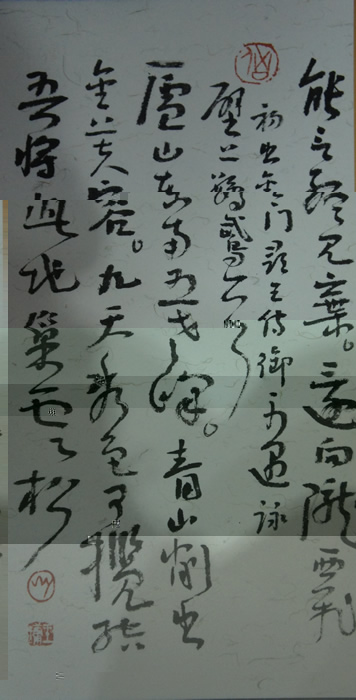 能言終見棄。還向隴西飛
初出金门尋王侍御不遇詠
壁上鸚鵡
廬山東南五老峰。青山削出
金芙容。九天秀色可攬結
吾將此地巢雲松